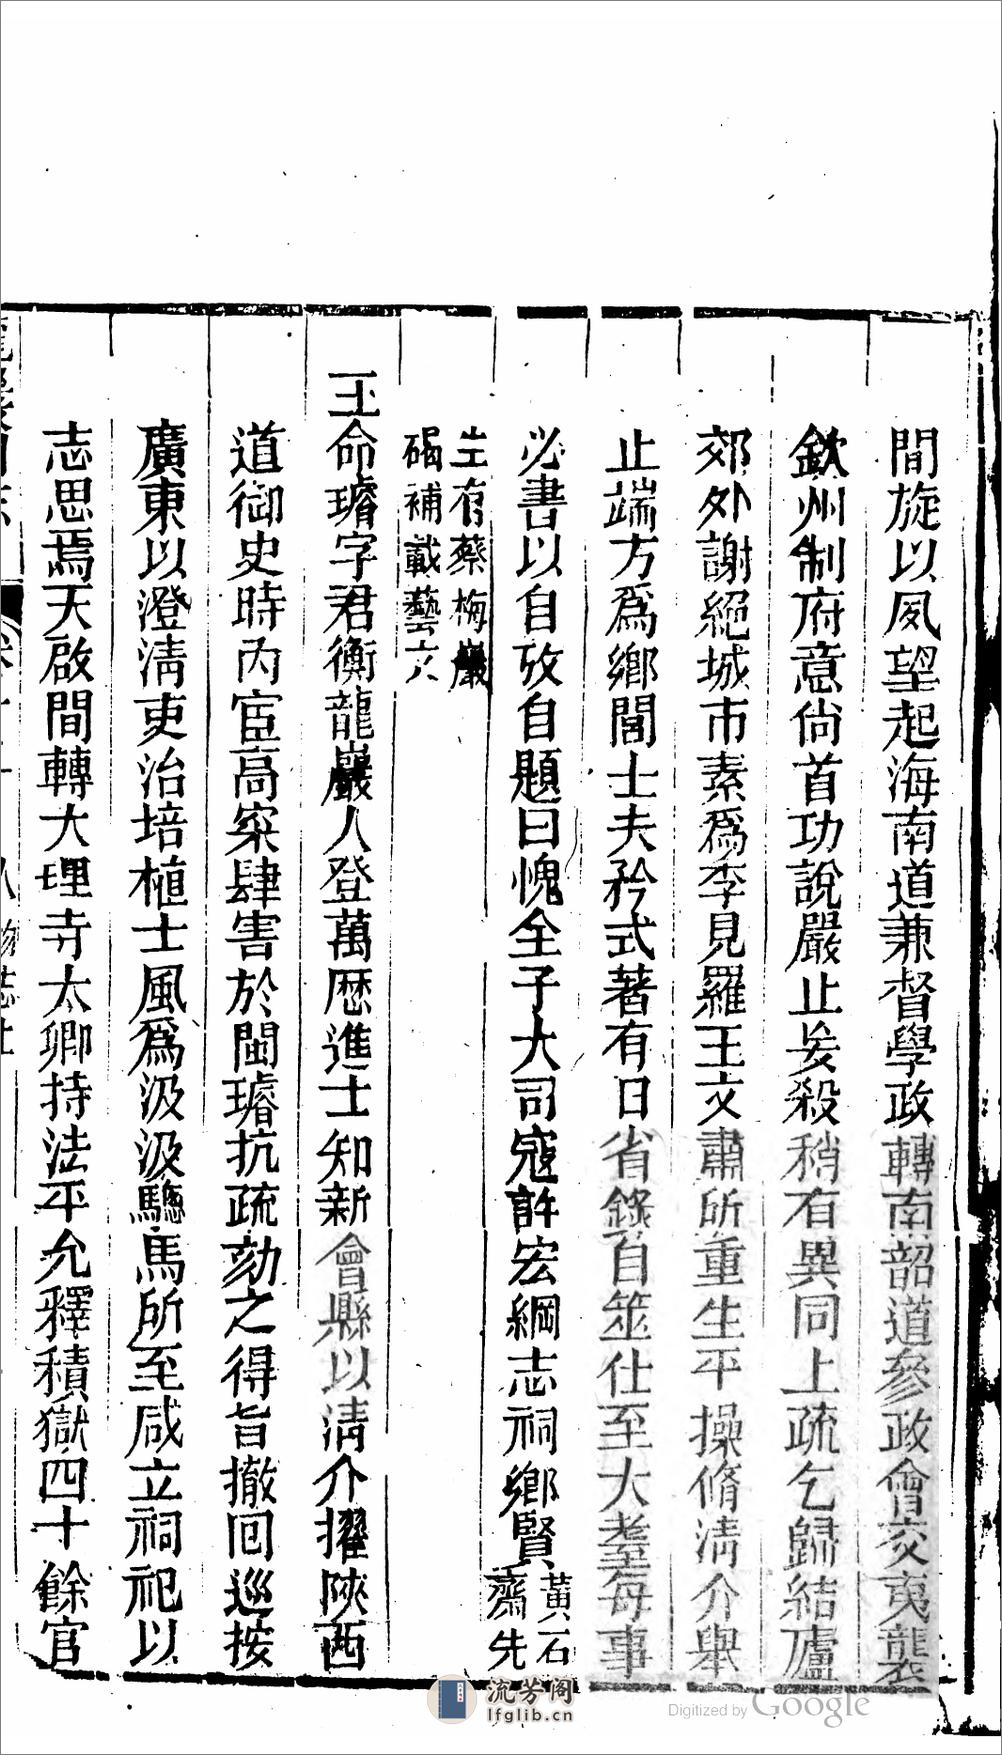 間旋以夙望起海南道兼督學政轉南韶道參政會交夷襲
欽州制府意尙首功說嚴止妄殺稍有異同上疏乞歸結廬
郊外謝絕城市素爲李見羅王文肅所重生平操脩淸介舉
止端方爲鄉閭士夫矜式著有日省錄自筮仕至大耋每事
必書以自攷自題曰愧全子大司寇許宏綱志祠鄉賢黃石
齋先
生有蔡梅巖
碣補載藝文
王命璿字君衡龍巖人登萬歷進士知新會縣以淸介擢陝西
道御史時內宦高寀肆害於閩璿抗疏劾之得旨撤囘巡按
廣東以澄淸吏治培植士風爲汲汲驄馬所至咸立祠祀以
志思焉天啟間轉大理寺太卿持法平允釋積獄四十餘官
龍巖州志
卷十二
人物志上
流芳阁
lfglib.cn
Digitized by Google